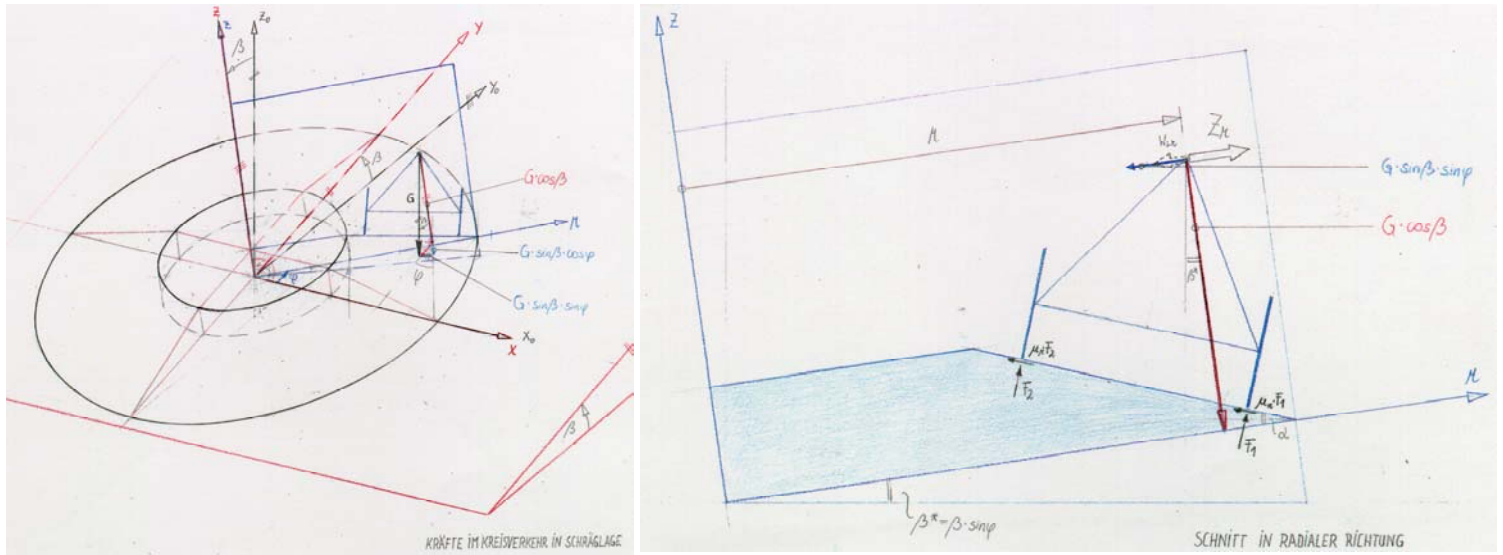 Z
z
Z₀
β
Y
Y₀
β
G·cosβ
G
r
G·sinβ·cosφ
φ
φ
G·sinβ·sinφ
X
X₀
β
KRÄFTE IM KREISVERKEHR IN SCHRÄGLAGE
Z
r
Zr
G·sinβ·sinφ
G·cosβ
β*
μr·F₂
F₂
μr·F₁
F₁
α
r
β*=β·sinφ
SCHNITT IN RADIALER RICHTUNG